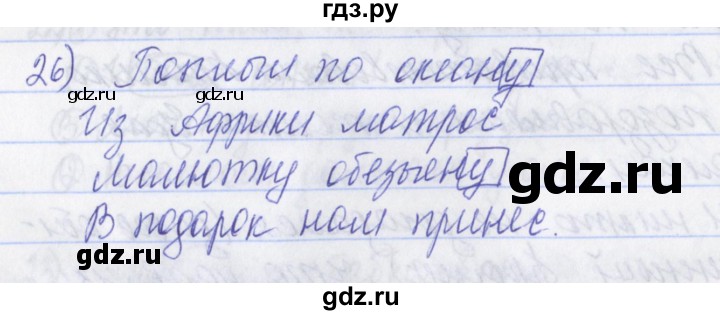 гдз.ру
26) Поплыл по океану
gdz.ru gdz.ru
Из Африки матрос
Малютку обезьяну
гдз.ру
В подарок нам принес.
gdz.ru gdz.ru
gdz.ru